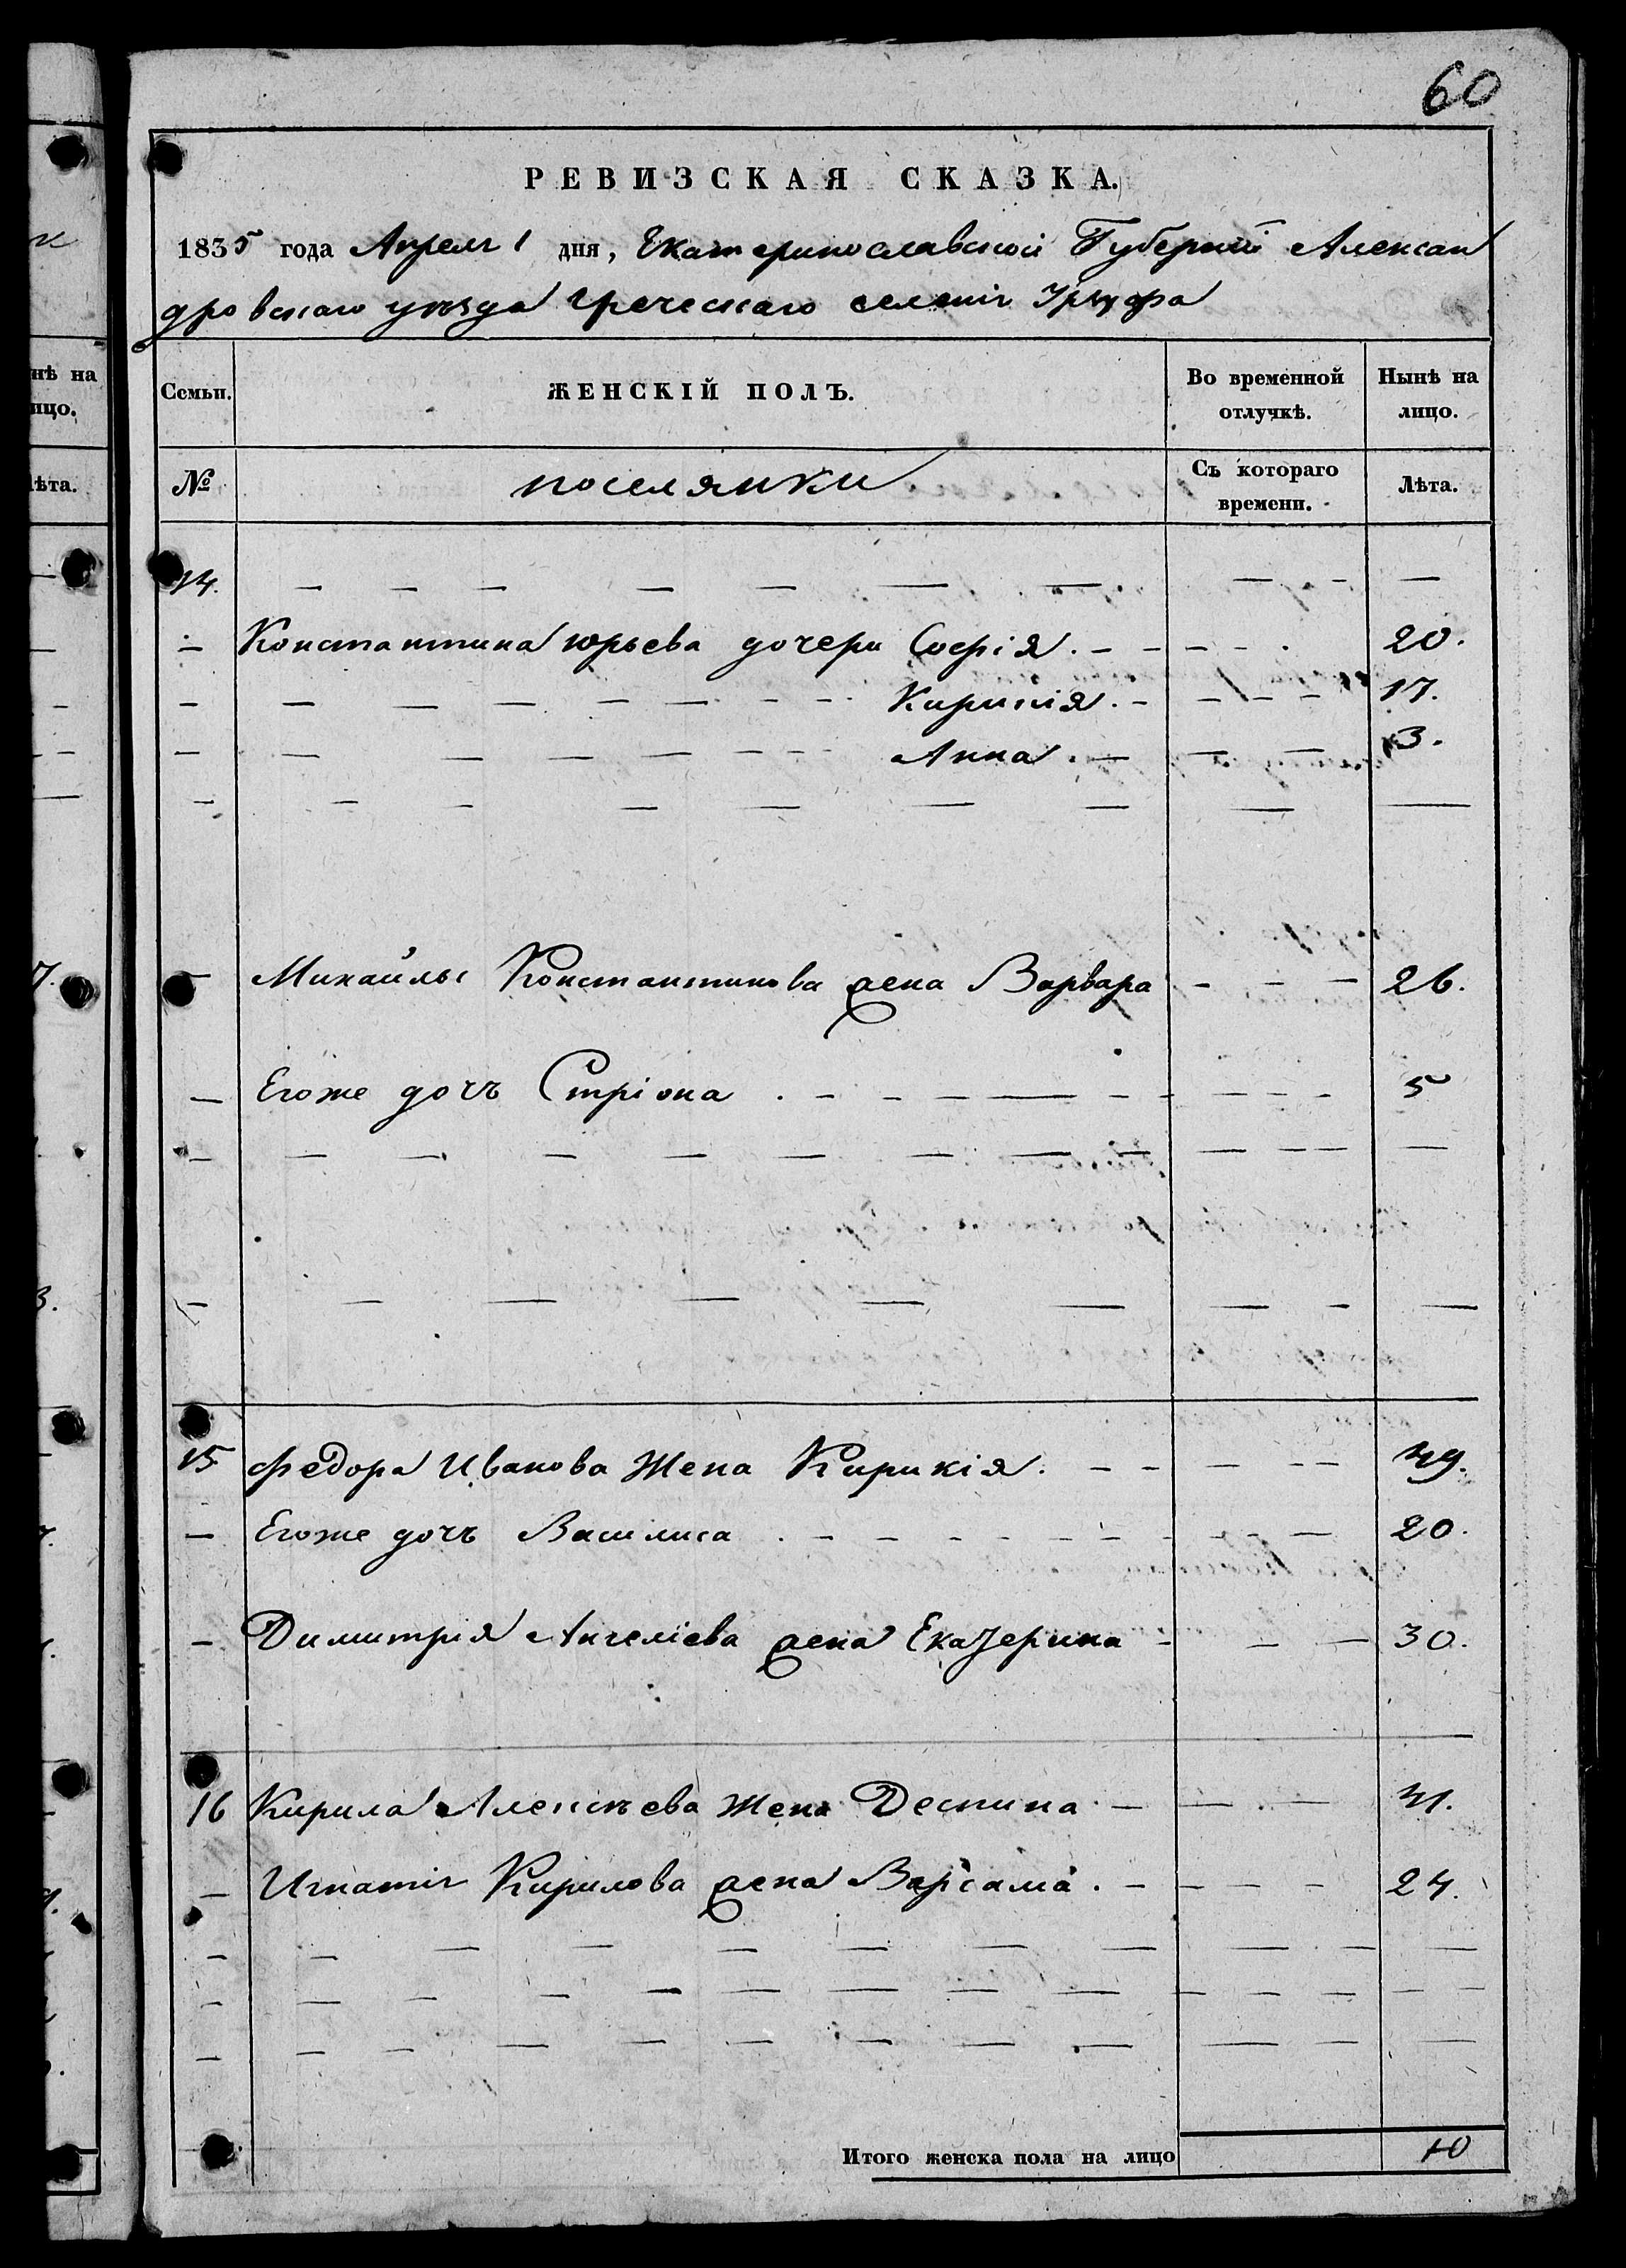 60
РЕВИЗСКАЯ СКАЗКА.
1835 года Апреля 1 дня, Екатеринославской Губернiи Алексан
дровскаго уѣзда греческаго селенiя Урзуфа
Семьи. ЖЕНСКІЙ ПОЛЪ. Во временной отлучкѣ. Нынѣ на лицо.
№ поселянки Съ котораго времени. Лѣта.
14.
Константина юрьева дочери Софiя. 20.
Кирикiя. 17.
Анна. 3.
Михайлы Константинова жена Варвара 26.
Егоже дочь Стрiона 5
15 Федора Иванова жена Кирикiя. 49.
Егоже дочь Василиса 20.
Димитрiя Ангелiева жена Екатерина 30.
16 Кирила Алексѣева жена Деспина 41.
Игнатiя Кирилова жена Варсама. 24.
Итого женска пола на лицо 10
нѣ на
лицо.
лѣта.